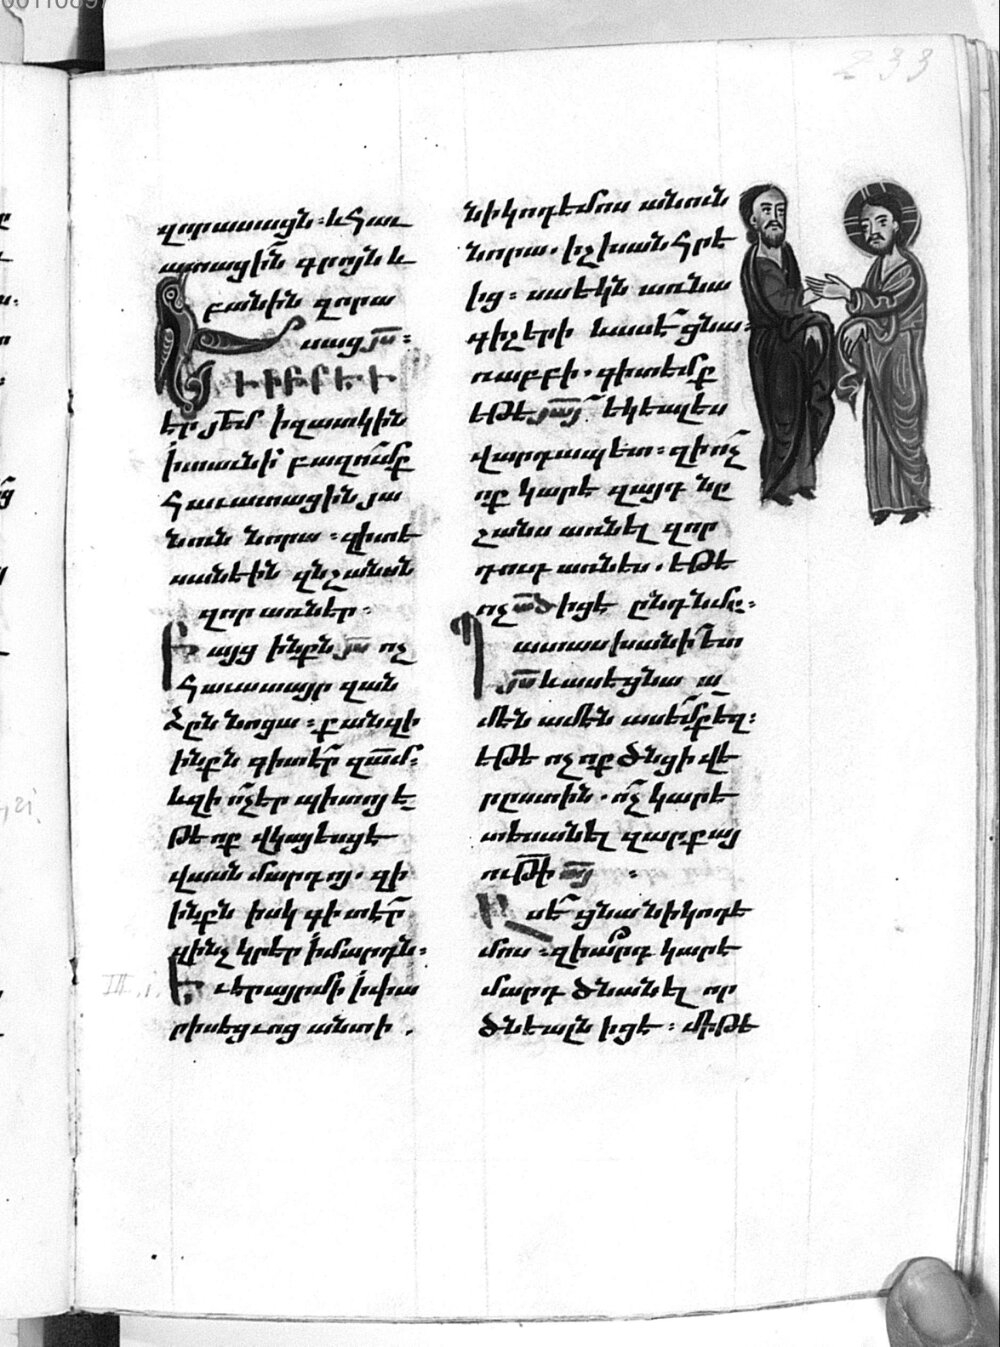 233
զորասացն։ և հաւ
ատացին գրոյն և
բանին զորա
սաց յս։
Եւ իբրև
էր յեմ ի զատկին
ի տաւնի բազումք
հաւատացին յա
նուն նորա։ զի տե
սանէին զնշանսն
զոր առնէր։
Բայց ինքն յս ոչ
հաւատայր զան
ձըն նոցա։ քանզի
ինքն գիտէր զամ։
և զի ոչ էր պիտոյ ե
թե ոք վկայեսցէ
վասն մարդոյ. զի
ինքն իսկ գիտէր
զինչ կրէր ի մարդն։
Եւ էր այր մի ի փա
րիսեցւոց անտի.
նիկոդեմոս անուն
նորա. իշխան հրէ
ից։ սա եկն առ նա
գիշերի և ասէ ցնա։
ռաբբի. գիտեմք
եթե յայ եկեալ ես
վարդապետ։ զի ոչ
ոք կարէ զայդ նը
շանս առնել զոր
դուդ առնես. եթե
ոչ ած իցէ ընդ նմը։
Պատասխանի ետ
յս և ասէ ցնա ա
մէն ամէն ասեմ քեզ։
եթե ոչ ոք ծնցի վե
րըստին. ոչ կարէ
տեսանել զարքայ
ութի այ։
Ասէ ցնա նիկոդե
մոս։ զիարդ կարէ
մարդ ծնանել որ
ծնեալն իցէ։ միթե